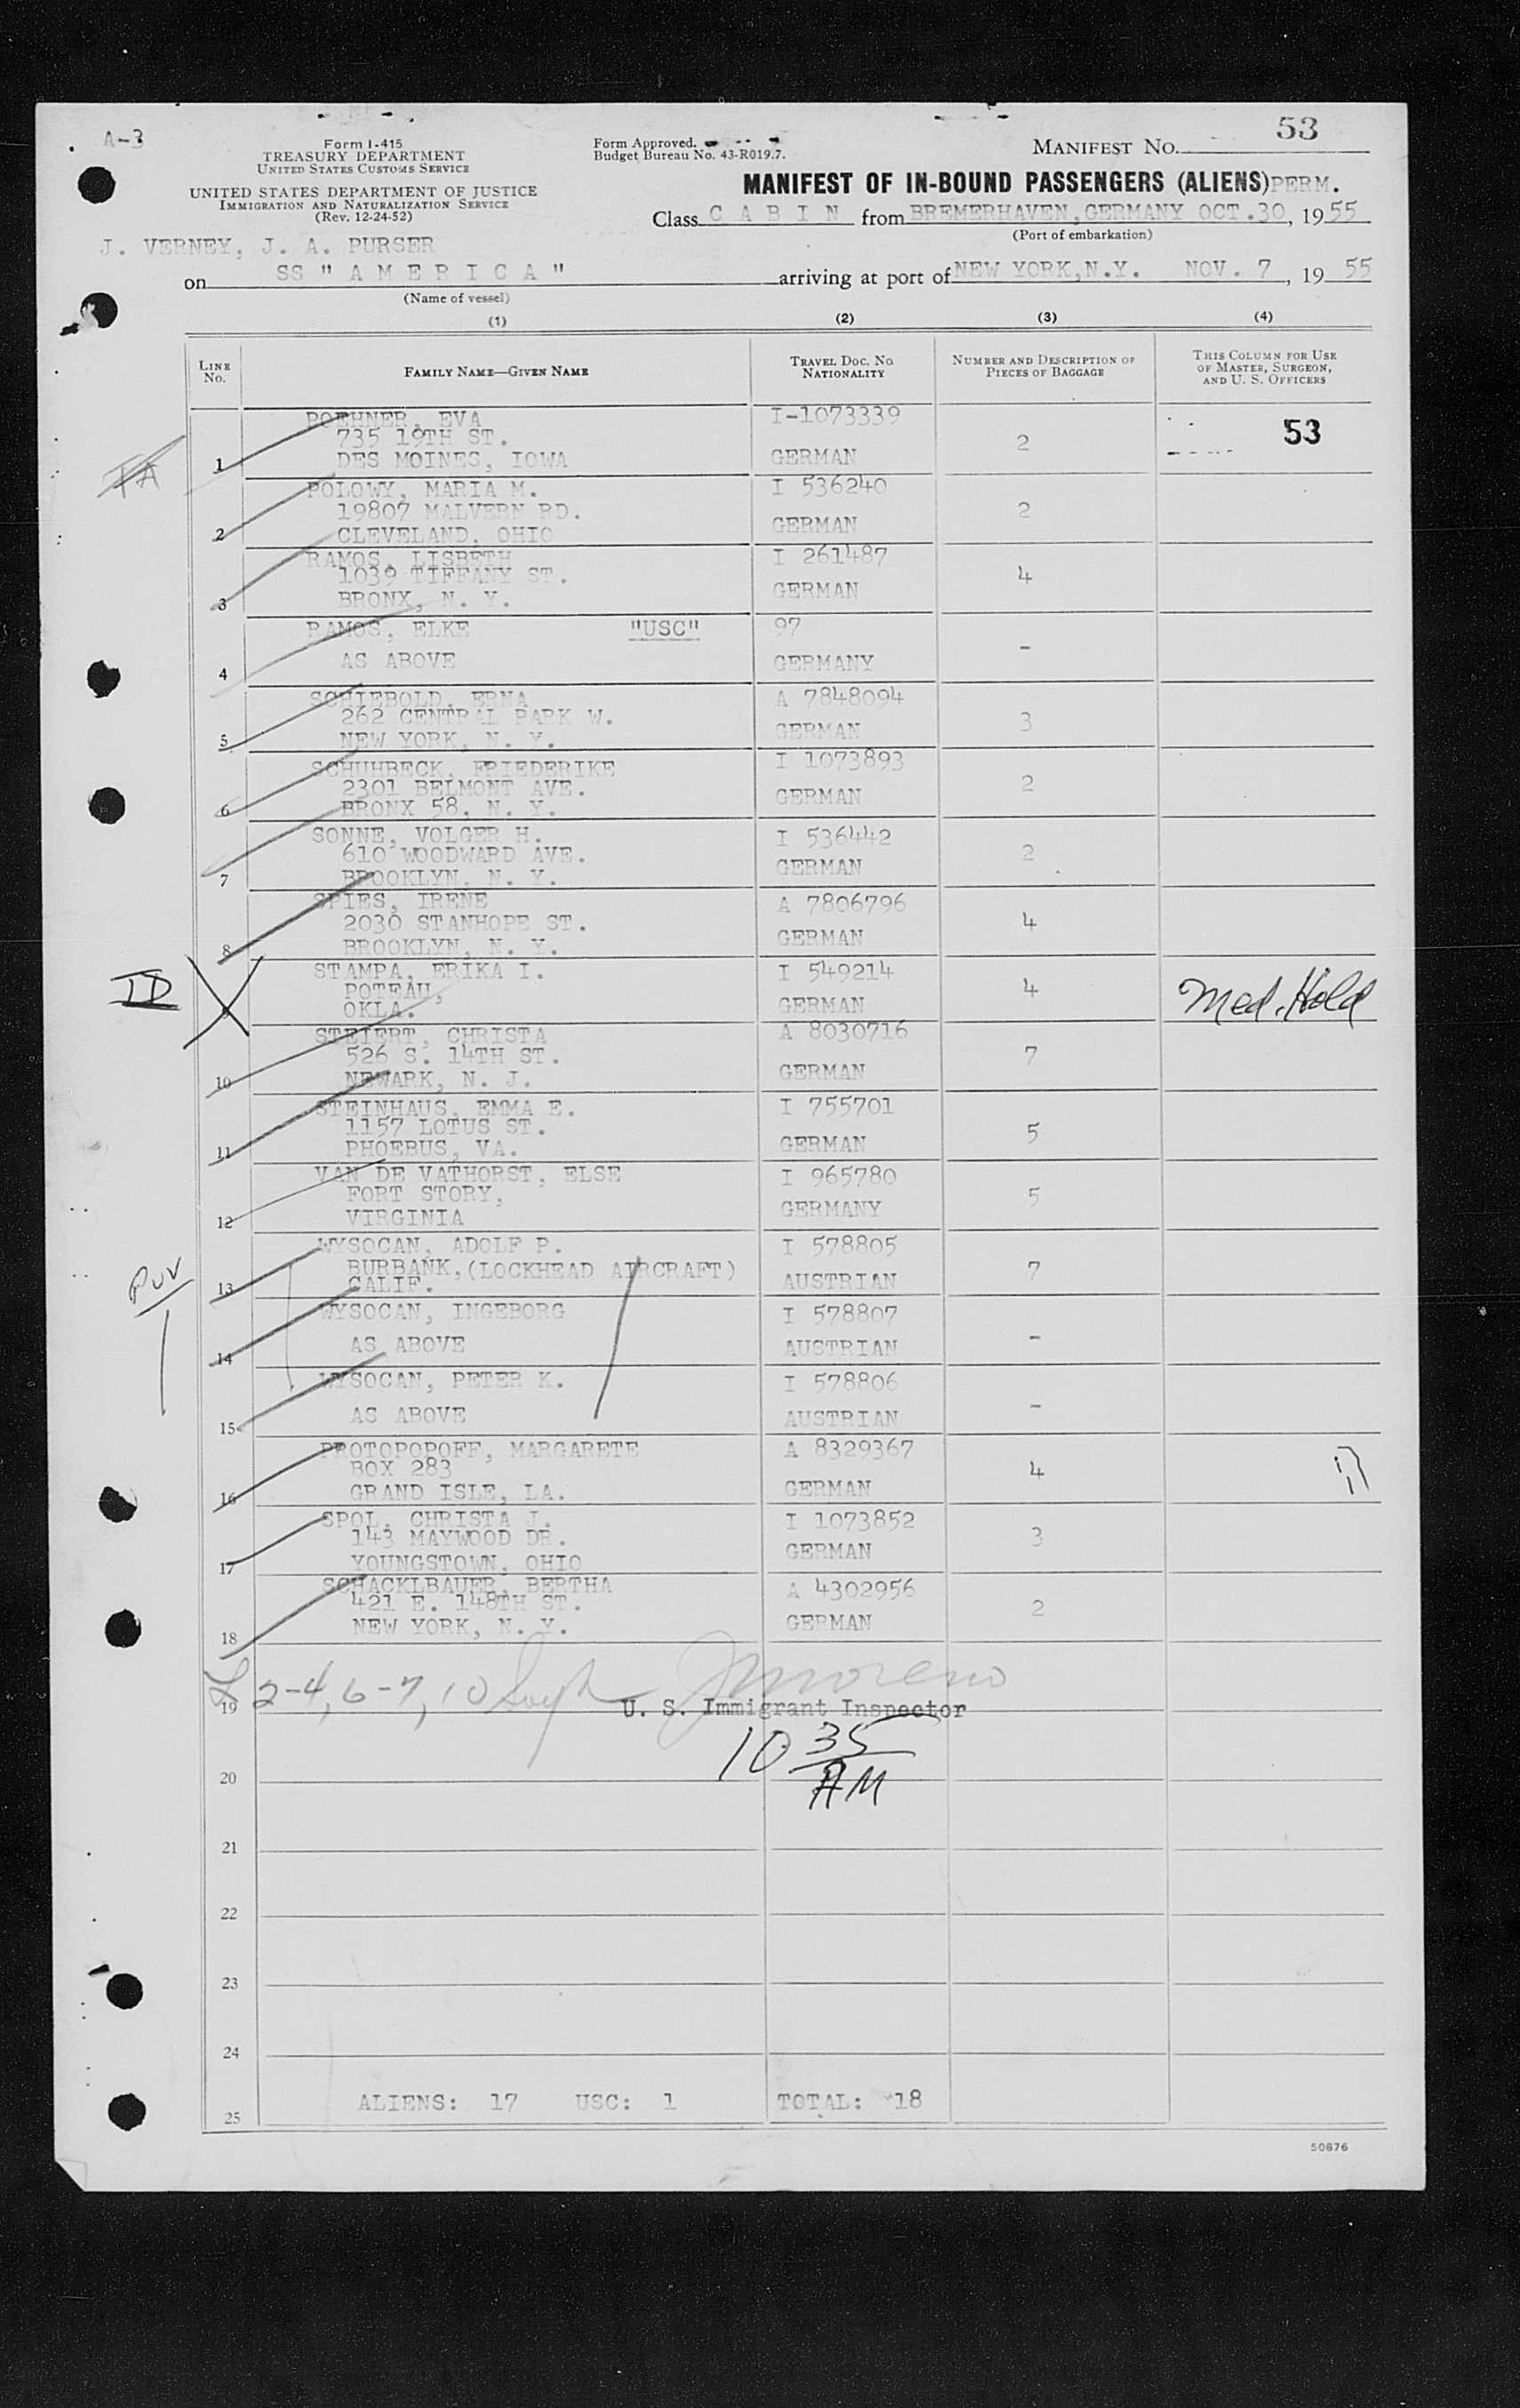 A-3
Form I-415
TREASURY DEPARTMENT
UNITED STATES CUSTOMS SERVICE
UNITED STATES DEPARTMENT OF JUSTICE
IMMIGRATION AND NATURALIZATION SERVICE
(Rev. 12-24-52)
Form Approved.
Budget Bureau No. 43-R019.7.
MANIFEST No. 53
MANIFEST OF IN-BOUND PASSENGERS (ALIENS) PERM.
Class C A B I N from BREMERHAVEN, GERMANY OCT.30, 1955
(Port of embarkation)
J. VERNEY, J. A. PURSER
on SS "A M E R I C A" arriving at port of NEW YORK, N.Y. NOV. 7, 1955
(Name of vessel)
(1) (2) (3) (4)
LINE No. FAMILY NAME—GIVEN NAME TRAVEL DOC. No. NATIONALITY NUMBER AND DESCRIPTION OF PIECES OF BAGGAGE THIS COLUMN FOR USE OF MASTER, SURGEON, AND U. S. OFFICERS
POEHNER, EVA I-1073339
735 19TH ST. 2 53
1 DES MOINES, IOWA GERMAN
POLOWY, MARIA M. I 536240
19807 MALVERN RD. 2
2 CLEVELAND, OHIO GERMAN
RAMOS, LISBETH I 261487
1039 TIFFANY ST. 4
3 BRONX, N. Y. GERMAN
RAMOS, ELKE "USC" 97
4 AS ABOVE GERMANY -
SCHIEBOLD, ERNA A 7848094
262 CENTRAL PARK W. 3
5 NEW YORK, N. Y. GERMAN
SCHUHBECK, FRIEDERIKE I 1073893
2301 BELMONT AVE. 2
6 BRONX 58, N. Y. GERMAN
SONNE, VOLGER H. I 536442
610 WOODWARD AVE. 2
7 BROOKLYN, N. Y. GERMAN
SPIES, IRENE A 7806796
2030 STANHOPE ST. 4
8 BROOKLYN, N. Y. GERMAN
STAMPA, ERIKA I. I 549214
POTEAU, 4 Med. Hold
OKLA. GERMAN
STEIERT, CHRISTA A 8030716
526 S. 14TH ST. 7
10 NEWARK, N. J. GERMAN
STEINHAUS, EMMA E. I 755701
1157 LOTUS ST. 5
11 PHOEBUS, VA. GERMAN
VAN DE VATHORST, ELSE I 965780
FORT STORY, 5
12 VIRGINIA GERMANY
WYSOCAN, ADOLF P. I 578805
BURBANK, (LOCKHEAD AIRCRAFT) 7
13 CALIF. AUSTRIAN
WYSOCAN, INGEBORG I 578807
14 AS ABOVE AUSTRIAN -
WYSOCAN, PETER K. I 578806
15 AS ABOVE AUSTRIAN -
PROTOPOPOFF, MARGARETE A 8329367
BOX 283 4
16 GRAND ISLE, LA. GERMAN
SPOL, CHRISTA J. I 1073852
143 MAYWOOD DR. 3
17 YOUNGSTOWN, OHIO GERMAN
SCHACKLBAUER, BERTHA A 4302956
421 E. 148TH ST. 2
18 NEW YORK, N. Y. GERMAN
19 2-4, 6-7, 10 JMoreno
U. S. Immigrant Inspector
10 35 AM
20
21
22
23
24
25 ALIENS: 17 USC: 1 TOTAL: 18
50876